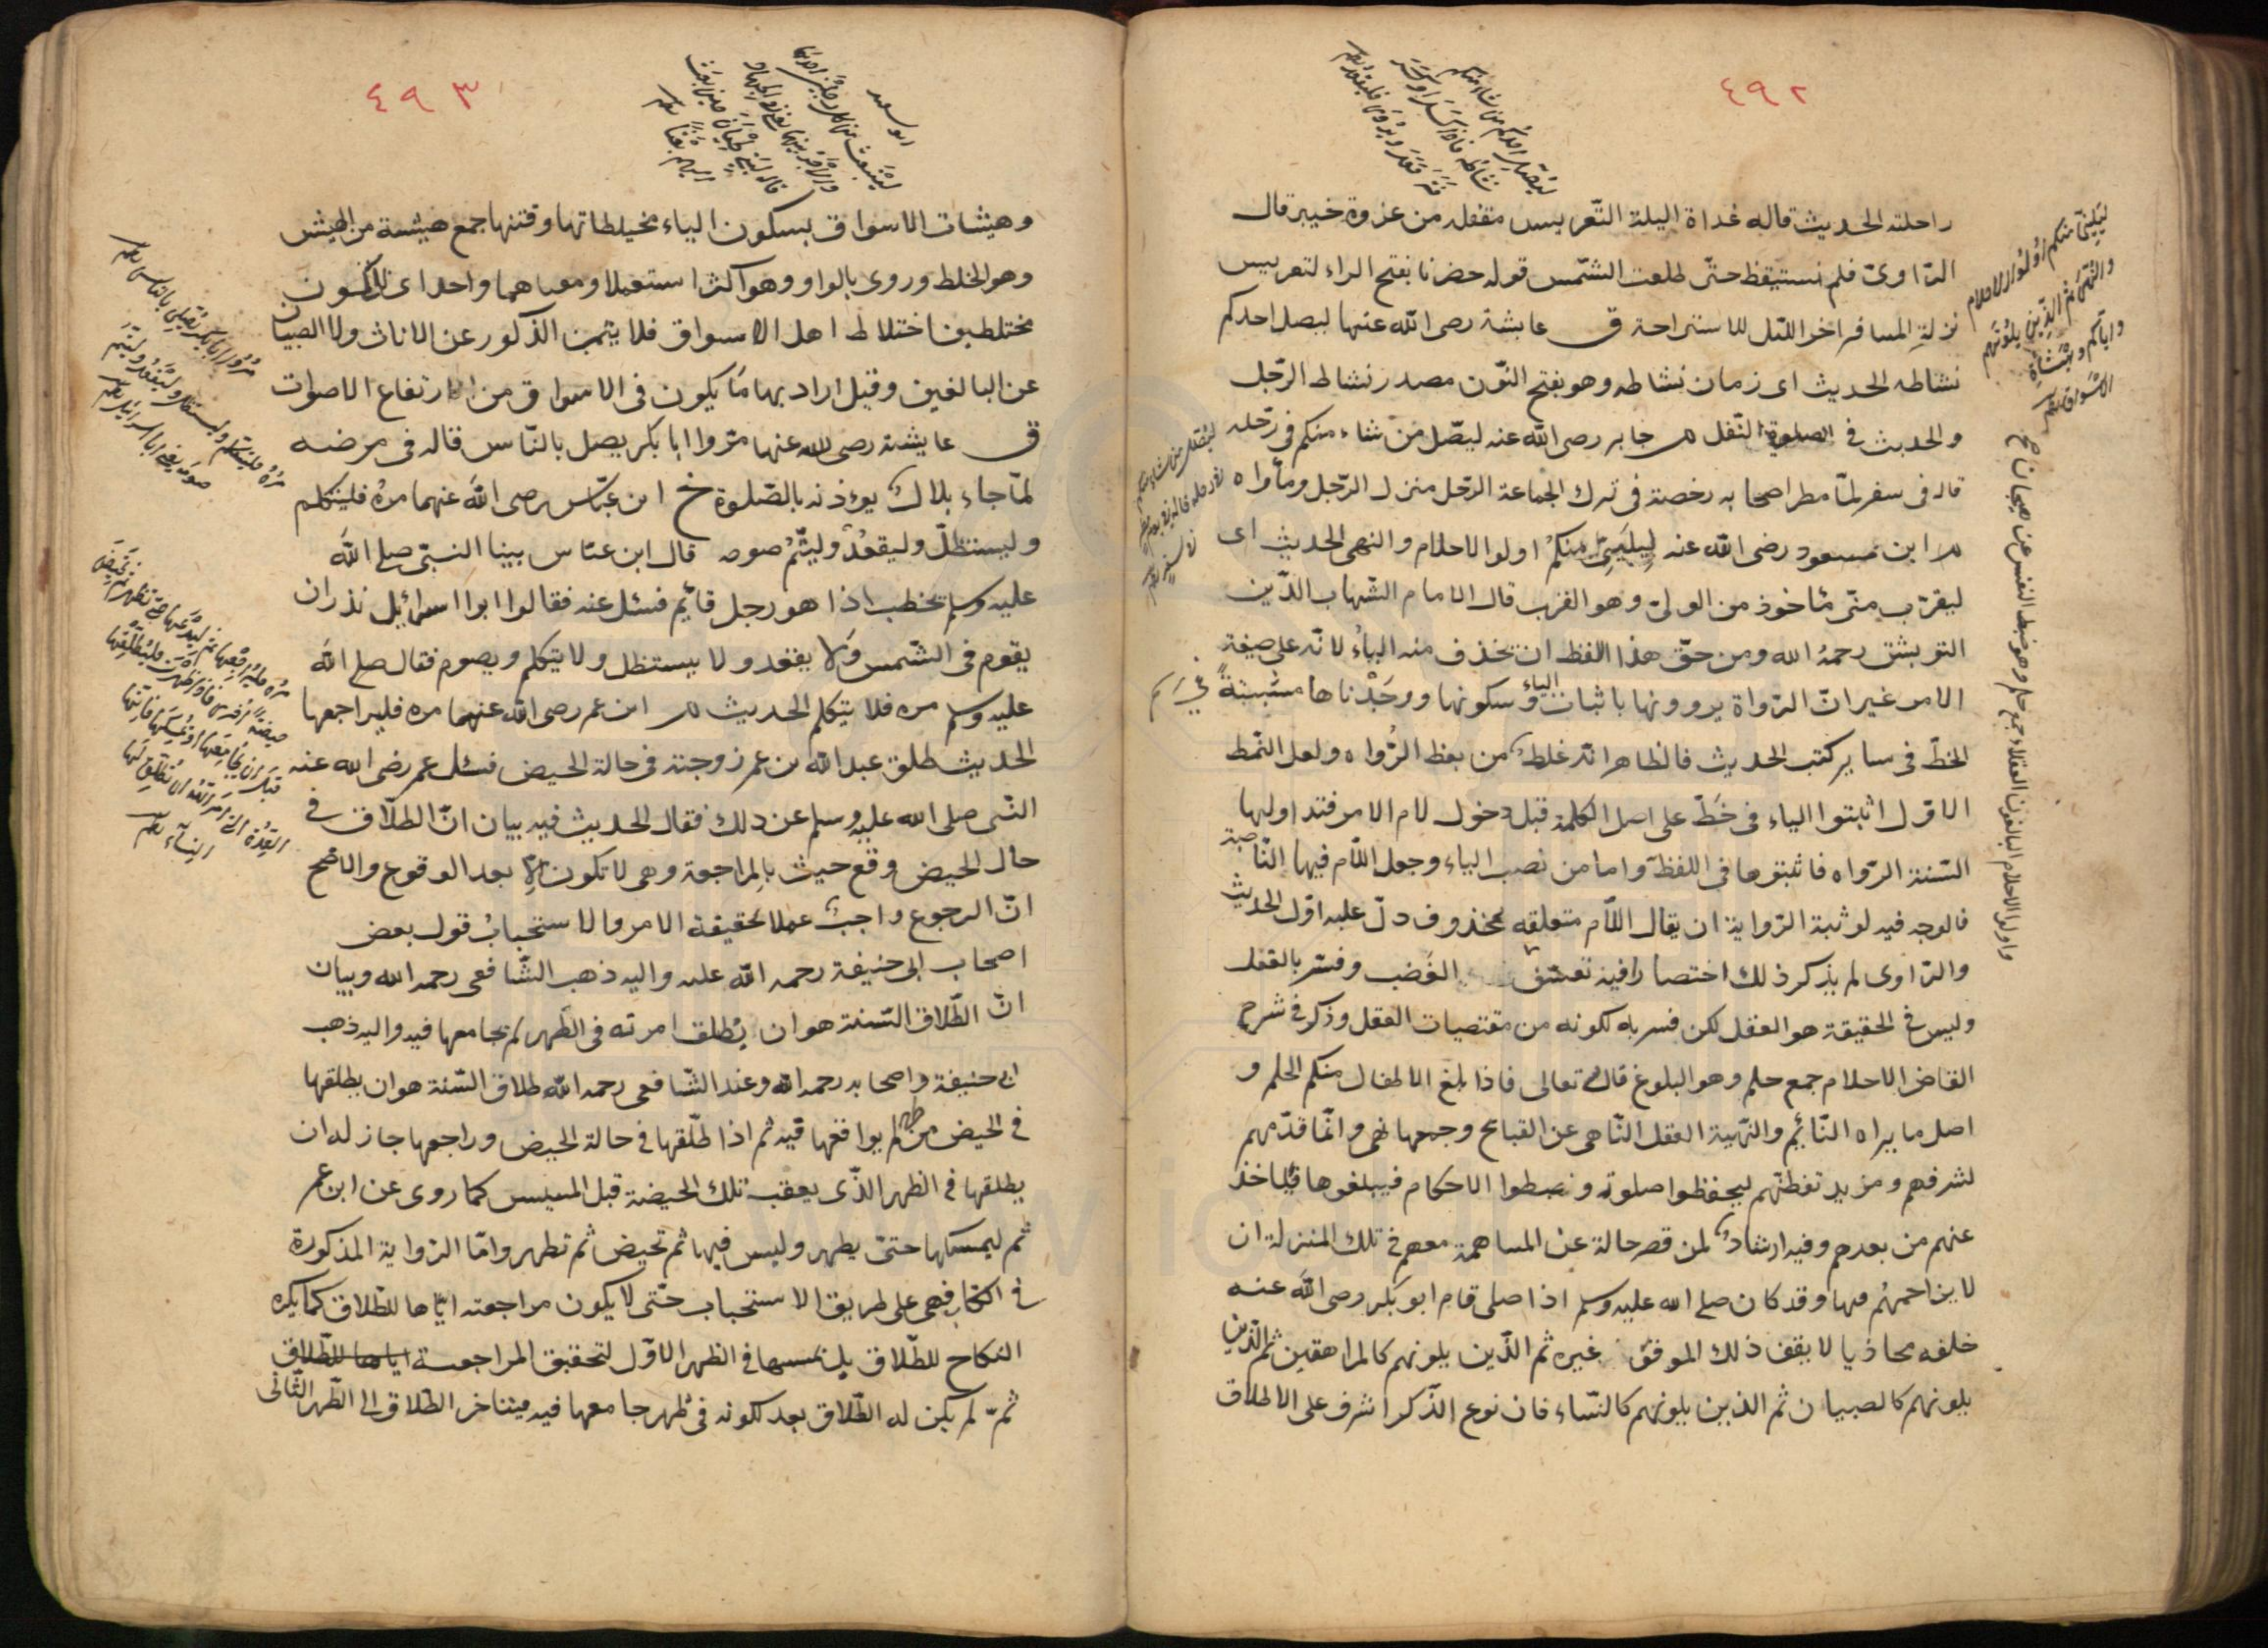 ٤٩٢
ليصل احدكم نشاطه فاذا كسل او فتر
قعد
راحلته الحديث قاله غداة اليلة التّعريس مقفله من غزوة خيبر قال
الرّاوىّ فلم نستيقظ حتّى طلعت الشّمس قوله حضرنا بفتح الراء لتعريس
نزلة المسافر اخر اللّيل للاستراحة ق عايشة رضى الله عنها ليصل احدكم
نشاطه الحديث اى زمان نشاطه وهو بفتح النّون مصدر نشاط الرّجل
والحديث فى الصلوة النّفل م جابر رضى الله عنه ليصّل من شاء منكم فى رحله
قاله فى سفر لمّا مطر اصحابه رخصة فى ترك الجماعة الرّحل منزل الرّجل ومأواه
م ابن مسعود رضى الله عنه لِيلَيِنىّ منكمْ اولوا الاحلام والنهى الحديث اى
ليقرّب منّى مأخوذ من الولىّ وهو القرب قال الامام الشّهاب الدّين
التوربشتى رحمهُ الله ومن حقّ هذا اللفظ ان تحذف منه الياءُ لانّه على صيغة
الامر غير انّ الرّواة يروونها باثبات الياء وسكونها ووجَدْناها مثبتةً فى رسم
الخطّ فى ساير كتب الحديث فالظاهر انّه غلطٌ من بعظ الرُّواه ولعل النّمط
الاوّل اثبتوا الياء فى خَطّ على اصل الكلمة قبل دخول لام الامر فتداولها
السّنة الرّواه فاثبتوها فى اللفظ واما من نصب الياء وجعل اللّام فيها النّاصبة
فالوجه فيه لو ثبتة الرّواية ان يقال اللّام متعلقه بمحذوف دلّ عليه اوّل الحديث
والرّاوى لم يذكر ذلك اختصارا فيه تعسّف الغَضب وفسّر بالعقل
وليس فى الحقيقة هو العقل لكن فسر به لكونه من مقتضيات العقل وذكر فى شرح
القاضى الاحلام جمع حلم وهو البلوغ قال الله تعالى فاذا بلغ الاطفال منكم الحلم و
اصل ما يراه النّائم والنّهية العقل النّاهى عن القبائح وجمعها نهى وانّما قدّمهم
لشرفهم ومزيد تفطنّهم ليحفظوا صلوته ونضبطوا الاحكام فيبلغوها فياخذ
عنهم من بعدهم وفيه ارشادٌ لمن قصر حالة عن المساهمة معهم فى تلك المنزلة ان
لا يزاحمهُم فيها وقد كان صلى الله عليه وسلم اذا صلى قام ابو بكر رضى الله عنه
خلفه محاذيا لا يقف ذلك الموقف غيره ثم الّذين يلونهم كالمراهقين ثم الّذين
يلونهم كالصبيان ثم الذين يلونهم كالنسّاء فان نوع الذّكر اشرف على الاطلاق
ليلينى منكم اولوا الاحلام
والنّهى ثمّ الذين يلونهم
واياكم وهيشات
الاسواق
ليصل من شاء منكم
٤٩٣
ابو سعيد
لينبعث من كل رجلين احدهما
والاجر بينهما
وهيشات الاسواق بسكون الياء مخيلطاتها وفتنها جمع هيشة من الهيش
وهو الخلط وروى بالواو وهو اكثر استعملا ومعناهما واحد اى لا تكون
مختلطين اختلاط اهل الاسواق فلا يتميّز الذّكور عن الاناث ولا الصبيان
عن البالغين وقيل اراد بها مَا يكون فى الاسواق من الارتفاع الاصوات
ق عايشة رضى لله عنها مرّوا ابا بكر يصل بالنّاس قاله فى مرضه
لمّا جاء بلالٌ يوءذنه بالصّلوة خ ابن عبّاس رضى الله عنهما مرهُ فليتكلم
وليستظلّ وليقعُدْ وليتُّم صومه قال ابن عبّاس بينا النبّى صلى الله
عليه وسلم يخطب اذا هو رجل قائم فسئل عنه فقالوا ابوا اسرائيل نذر ان
يقوم فى الشّمس وَلا يقعد ولا يستظل ولا يتكلم ويصوم فقال صلى الله
عليه وسلم مره فلا يتكلم الحديث م ابن عمر رضى الله عنهما مره فليراجعها
الحديث طلق عبد الله بن عمر زوجته فى حالة الحيض فسئل عمر رضى الله عنه
النّبى صلى الله عليه وسلم عن ذلك فقال الحديث فيه بيان انّ الطلّاق فى
حال الحيض وقع حيث بالمراجعة وهى لا تكون الّا بعد الوقوع والاضح
انّ الرجوع واجبٌ عملا بحقيقة الامر والاستحبابُ قول بعض
اصحاب ابى حنيفة رحمه الله عليه واليه ذهب الشّافعى رحمه الله وبيان
انّ الطّلاق السّنة هو ان يُطلق امرته فى الطّهر لم يجامعها فيه واليه ذهب
ابى حنيفة واصحابه رحمه الله وعند الشّافعى رحمه الله طلاق السّنة هو ان يطلقها
فى الحيض من طهر لم يواقعها فيه ثم اذا طلّقها فى حالة الحيض وراجعها جاز له ان
يطلقها فى الطهر الذّى يعقب تلك الحيضة قبل المسيس كما روى عن ابن عمر
ثم ليمسكها حتىّ يطهر وليس فيها ثم تحيض ثم تطهر وامّا الرّواية المذكورة
فى الكتاب فهى على طريق الاستحباب حتّى لا يكون مراجعته ايّاها للطّلاق كما يكره
النكاح للطّلاق بل يمسها فى الطهر الاوّل لتحقيق المراجعة اياها للطّلاق
ثمّ لم يكن له الطّلاق بعد لكونه فى طهر جامعها فيه فيتأخر الطّلاق الى الطّهر الثّانى
مروا ابا بكر يصلى بالناس
مره فليتكلم وليستظل وليقعد وليتم
صومه
مره فليراجعها